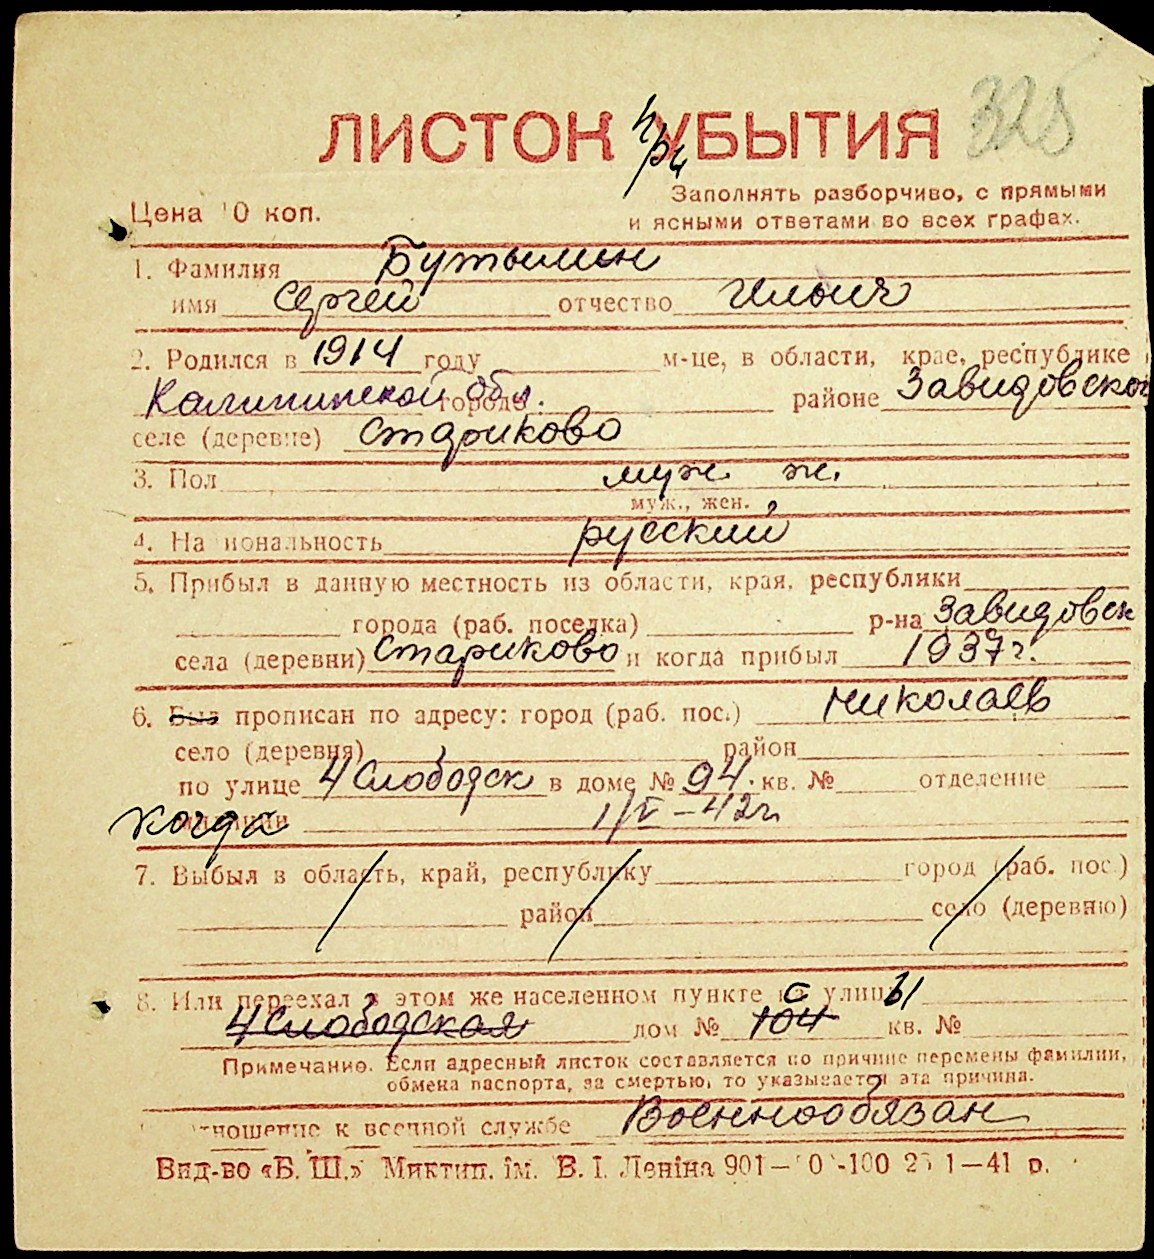 325
ЛИСТОК при УБЫТИЯ
Заполнять разборчиво, с прямыми
Цена 10 коп.
и ясными ответами во всех графах.
1. Фамилия Бутылин
имя Сергей отчество Ильич
2. Родился в 1914 году м-це, в области, крае, республике
Калининской обл. города районе Завидовской
селе (деревне) Стариково
3. Пол муж. ж.
муж., жен.
4. Национальность русский
5. Прибыл в данную местность из области, края, республики
города (раб. поселка) р-на Завидовск
села (деревни) Стариково и когда прибыл 1937 г.
6. Был прописан по адресу: город (раб. пос.) Николаев
село (деревня) район
по улице 4 Слободск в доме № 94. кв. № отделение
когда милиции 1/V-42 г.
7. Выбыл в область, край, республику город (раб. пос.)
район село (деревню)
8. Или переехал в этом же населенном пункте с улицы
4 Слободская дом № 104 кв. №
Примечание. Если адресный листок составляется по причине перемены фамилии,
обмена паспорта, за смертью, то указывается эта причина.
отношение к военной службе Военнообязан
Вид-во «Б. Ш.» Миктип. ім. В. І. Леніна 901— 0 -100 25 1—41 р.